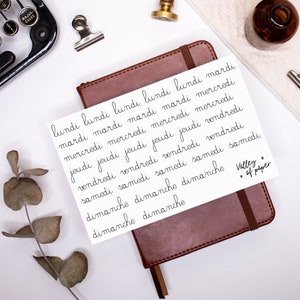 lundi lundi lundi lundi lundi
mardi mardi mardi mardi mardi
mercredi mercredi mercredi mercredi
jeudi jeudi jeudi jeudi vendredi
vendredi vendredi vendredi vendredi
samedi samedi samedi samedi samedi
dimanche dimanche dimanche
dimanche dimanche
Valley of paper